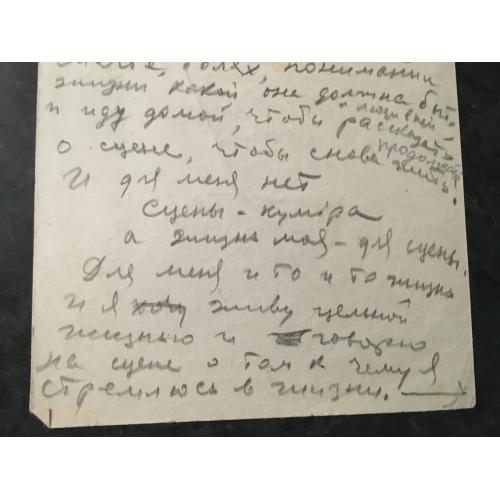 болях, понимании
жизни какой она должна быть
и людей –
и иду домой, чтобы рассказать
продолжать
о сцене, чтобы снова жить.
И для меня нет
сцены – куміра
а жизнь моя – для сцены.
Для меня и то и то жизнь
И я хочу живу цельной
жизнью и говорю
на сцене о том к чему я
стремлюсь в жизни. —→